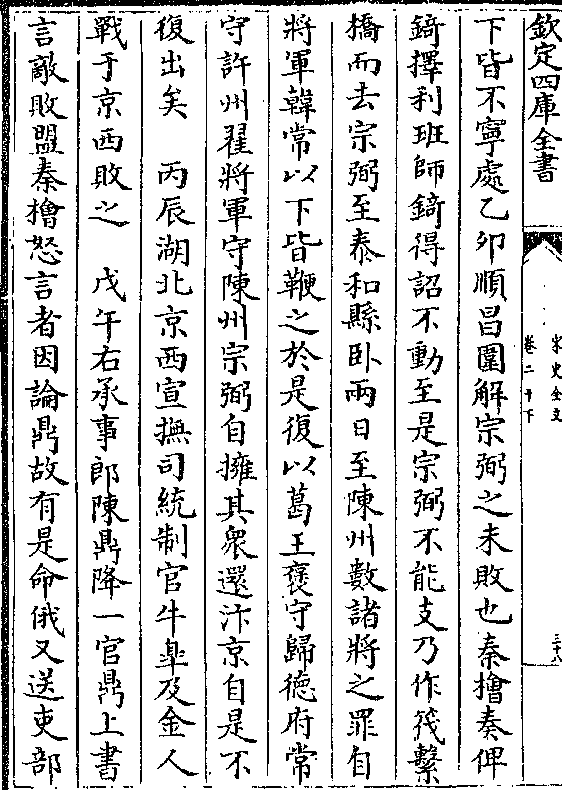 欽定四庫全書
宋史全文
卷二十下
三十八
下皆不寧處乙卯順昌圍解宗弼之未敗也秦檜奏俾
錡擇利班師錡得詔不動至是宗弼不能支乃作筏繫
橋而去宗弼至泰和縣卧兩日至陳州數諸將之罪自
將軍韓常以下皆鞭之於是復以葛王褎守歸徳府常
守許州翟將軍守陳州宗弼自擁其衆還汴京自是不
復出矣 丙辰湖北京西宣撫司統制官牛臯及金人
戰于京西敗之 戊午右承事郎陳鼎降一官鼎上書
言敵敗盟秦檜怒言者因論鼎故有是命俄又送吏部